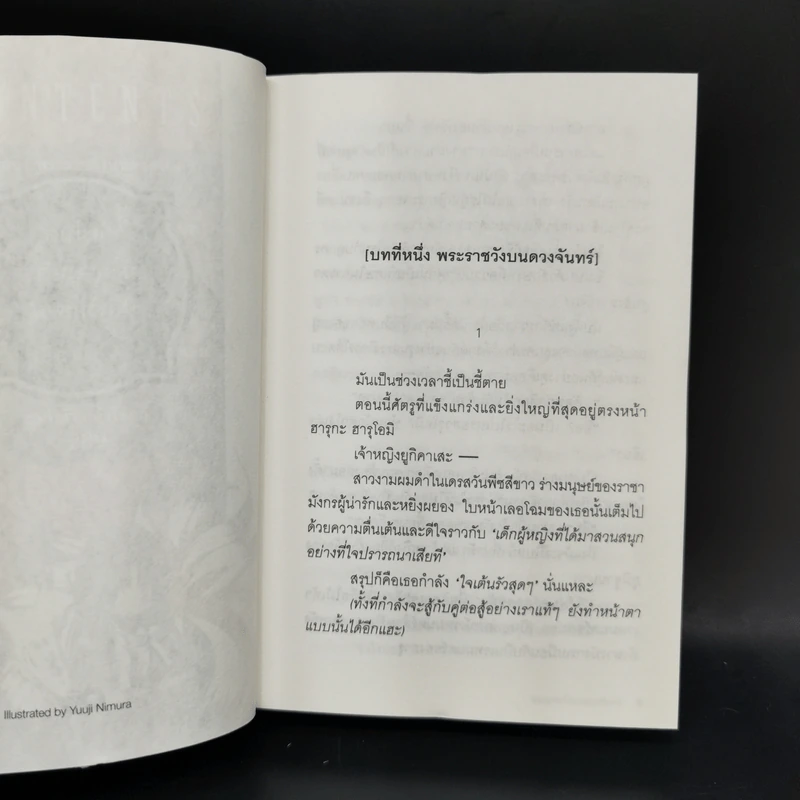 Illustrated by Yuuji Nimura
[บทที่หนึ่ง พระราชวังบนดวงจันทร์]
1
มันเป็นช่วงเวลาชี้เป็นชี้ตาย
ตอนนี้ศัตรูที่แข็งแกร่งและยิ่งใหญ่ที่สุดอยู่ตรงหน้า
ฮารุกะ ฮารุโอมิ
เจ้าหญิงยูกิคาเสะ —
สาวงามผมดำในเดรสวันพีซสีขาว ร่างมนุษย์ของราชา
มังกรผู้น่ารักและหยิ่งผยอง ใบหน้าเลอโฉมของเธอนั้นเต็มไป
ด้วยความตื่นเต้นและดีใจราวกับ ‘เด็กผู้หญิงที่ได้มาสวนสนุก
อย่างที่ใจปรารถนาเสียที’
สรุปก็คือเธอกำลัง ‘ใจเต้นรัวสุดๆ’ นั่นแหละ
(ทั้งที่กำลังจะสู้กับคู่ต่อสู้อย่างเราแท้ๆ ยังทำหน้าตา
แบบนั้นได้อีกแฮะ)